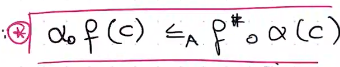 ⊛ α∘f(c) ≤_A f^#∘α(c)